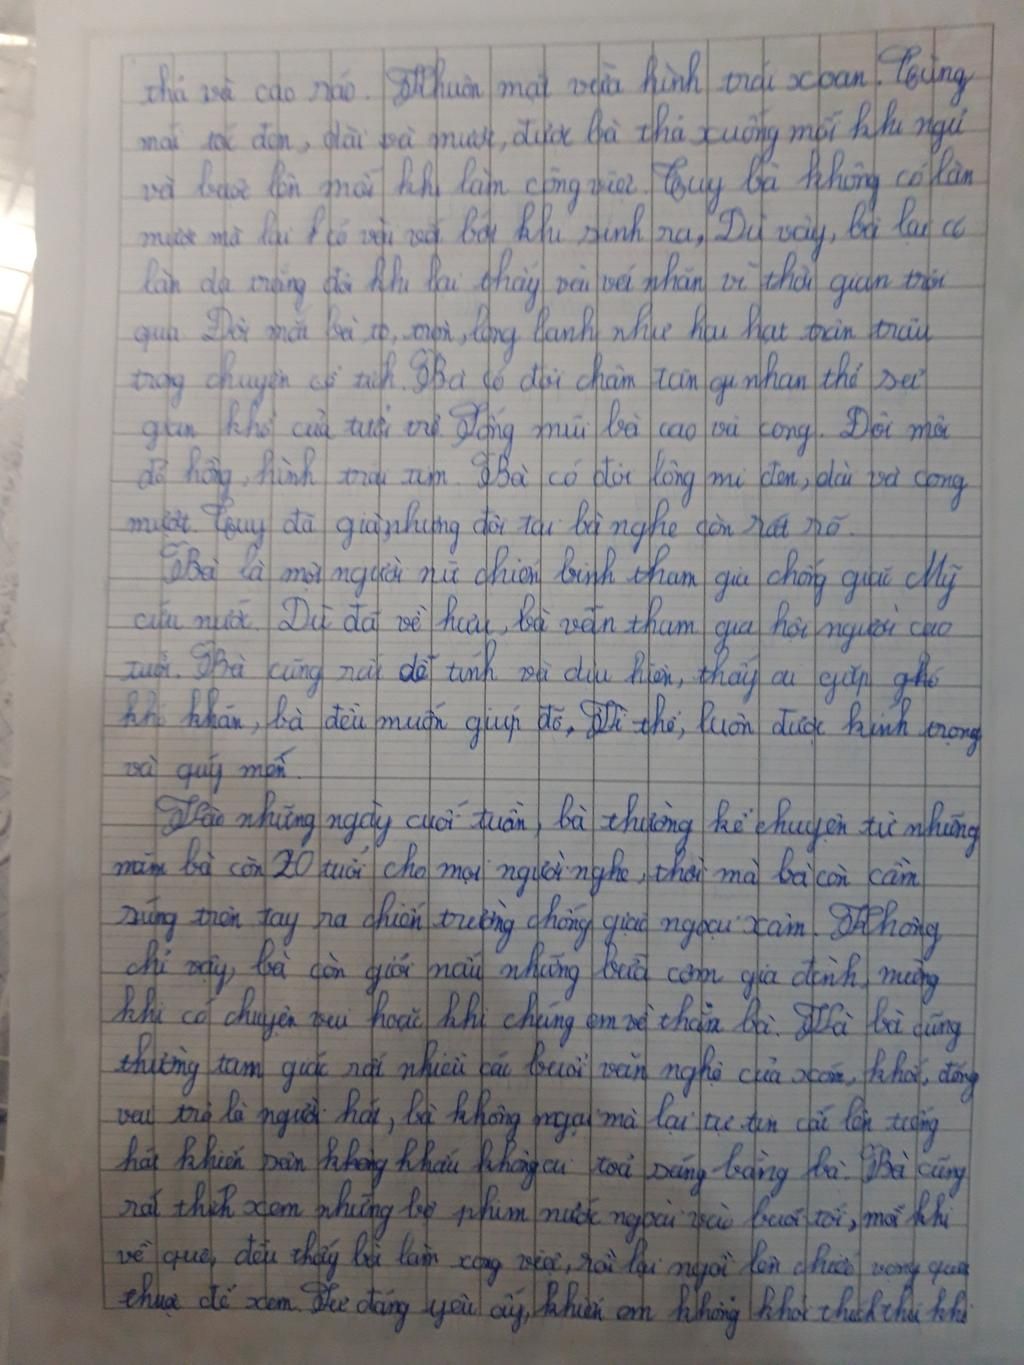 thả và cao ráo. Khuôn mặt vừa hình trái xoan. Từng
mái tóc đen, dài và mượt, được bà thả xuống mỗi khi ngủ
và buộc lên mỗi khi làm công việc. Tuy bà không có làn
mượt mà lại có vài vết bớt khi sinh ra, Dù vậy, bà lại có
làn da trắng đôi khi lại thấy vài vết nhăn vì thời gian trôi
qua. Đôi mắt bà to, tròn, long lanh như hai hạt trân trâu
trong chuyện cổ tích. Bà có đôi chân tàn nhan thể sự
gian khổ của tuổi trẻ. Sống mũi bà cao và cong. Đôi môi
đỏ hồng, hình trái tim. Bà có đôi lông mi đen, dài và cong
mượt. Tuy đã già, nhưng đôi tai bà nghe còn rất rõ.
Bà là một người nữ chiến binh tham gia chống giặc Mỹ
cứu nước. Dù đã về hưu, bà vẫn tham gia hội người cao
tuổi. Bà cũng rất dễ tính và dịu hiền, thấy ai gặp
khó khăn, bà đều muốn giúp đỡ, Vì thế, luôn được kính trọng
và quý mến.
Vào những ngày cuối tuần, bà thường kể chuyện từ những
năm bà còn 20 tuổi cho mọi người nghe, thời mà bà còn cầm
súng trên tay ra chiến trường chống giặc ngoại xâm. Không
chỉ vậy, bà còn giỏi nấu những bữa cơm gia đình, mừng
khi có chuyện vui hoặc khi chúng em về thăm bà. Và bà cũng
thường tam giác rất nhiều các buổi văn nghệ của xóm, khối, đóng
vai trò là người hát, bà không ngại mà lại tự tin cất lên tiếng
hát khiến sân không khấu không ai toả sáng bằng bà. Bà cũng
rất thích xem những bộ phim nước ngoài vào buổi tối, mỗi khi
về quê, đều thấy bà làm xong việc, rồi lại ngồi lên chiếc vọng quen
thuộc để xem. Sự đáng yêu ấy, khiến em không khỏi thích thú khi